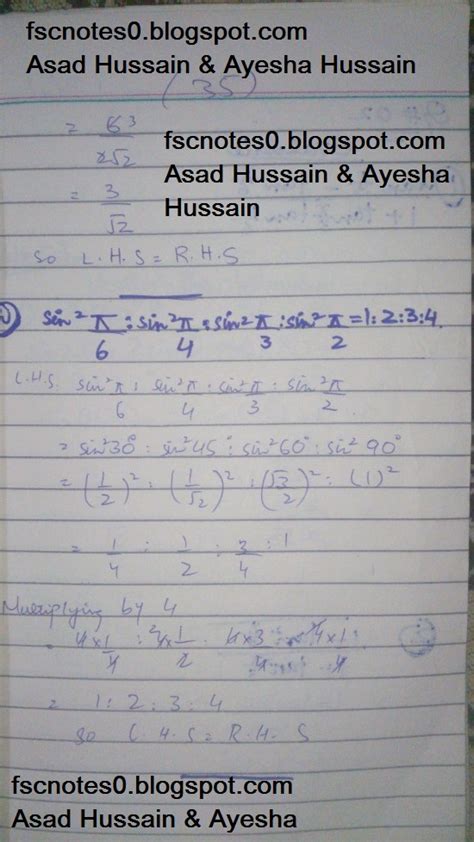 fscnotes0.blogspot.com
Asad Hussain & Ayesha Hussain
(35)
= 6 3 / 2√2
fscnotes0.blogspot.com
Asad Hussain & Ayesha
Hussain
= 3/√2
So L.H.S = R.H.S
sin² π/6 : sin² π/4 : sin² π/3 : sin² π/2 = 1:2:3:4.
L.H.S. sin² π/6 : sin² π/4 : sin² π/3 : sin² π/2
= sin² 30° : sin² 45° : sin² 60° : sin² 90°
= (1/2)² : (1/√2)² : (√3/2)² : (1)²
= 1/4 : 1/2 : 3/4 : 1
Multiplying by 4
4×1/4 : 4×1/2 : 4×3/4 : 4×1
= 1 : 2 : 3 : 4
so L.H.S = R.H.S
fscnotes0.blogspot.com
Asad Hussain & Ayesha